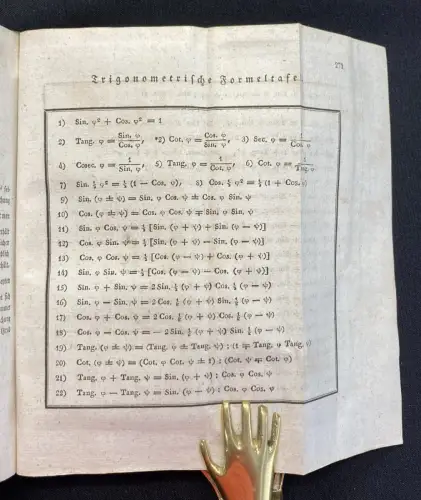 271
Trigonometrische Formeltafel
1) Sin. φ² + Cos. φ² = 1
2) Tang. φ = Sin. φ / Cos. φ, *2) Cot. φ = Cos. φ / Sin. φ, 3) Sec. φ = 1 / Cos. φ
4) Cosec. φ = 1 / Sin. φ, 5) Tang. φ = 1 / Cot. φ, 6) Cot. φ = 1 / Tang. φ
7) Sin. ½ φ² = ½ (1 − Cos. φ), 8) Cos. ½ φ² = ½ (1 + Cos. φ)
9) Sin. (φ ± ψ) = Sin. φ Cos. ψ ± Cos. φ Sin. ψ
10) Cos. (φ ± ψ) = Cos. φ Cos. ψ ∓ Sin. φ Sin. ψ
11) Sin. φ Cos. ψ = ½ [Sin. (φ + ψ) + Sin. (φ − ψ)]
12) Cos. φ Sin. ψ = ½ [Sin. (φ + ψ) − Sin. (φ − ψ)]
13) Cos. φ Cos. ψ = ½ [Cos. (φ − ψ) + Cos. (φ + ψ)]
14) Sin. φ Sin. ψ = ½ [Cos. (φ − ψ) − Cos. (φ + ψ)]
15) Sin. φ + Sin. ψ = 2 Sin. ½ (φ + ψ) Cos. ½ (φ − ψ)
16) Sin. φ − Sin. ψ = 2 Cos. ½ (φ + ψ) Sin. ½ (φ − ψ)
17) Cos. φ + Cos. ψ = 2 Cos. ½ (φ + ψ) Cos. ½ (φ − ψ)
18) Cos. φ − Cos. ψ = − 2 Sin. ½ (φ + ψ) Sin. ½ (φ − ψ)
19) Tang. (φ ± ψ) = (Tang. φ ± Tang. ψ) : (1 ∓ Tang. φ Tang. ψ)
20) Cot. (φ ± ψ) = (Cot. φ Cot. ψ ∓ 1) : (Cot. ψ ± Cot. φ)
21) Tang. φ + Tang. ψ = Sin. (φ + ψ) : Cos. φ Cos. ψ
22) Tang. φ − Tang. ψ = Sin. (φ − ψ) : Cos. φ Cos. ψ